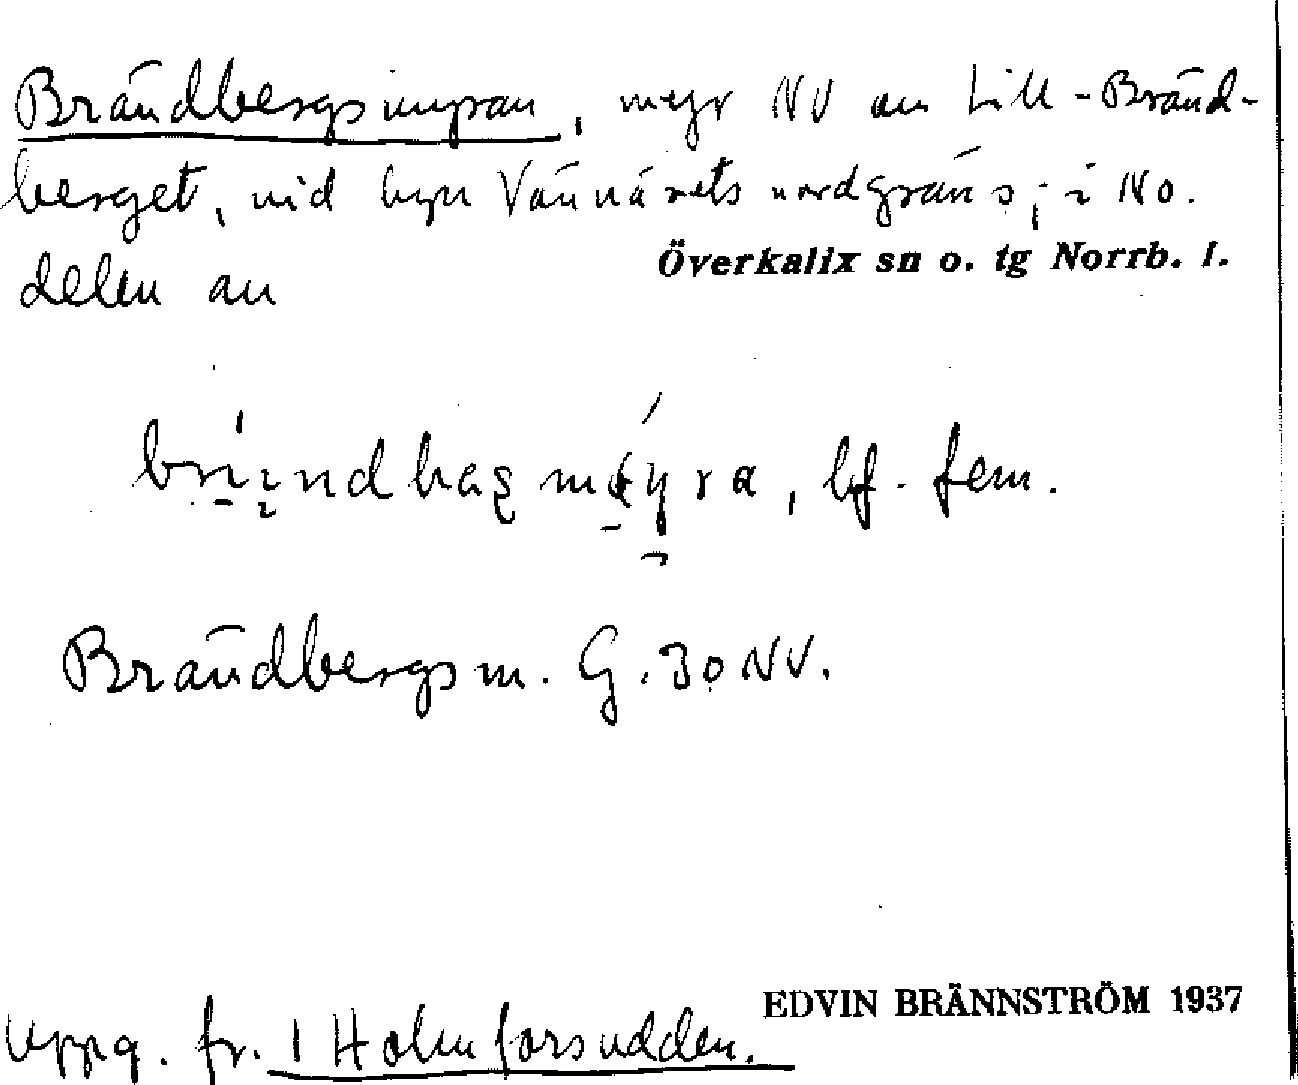 Brändbergsmyran, myr NV om Lill-Bränd-
berget, vid byn Vännäsets nordgräns, i NO.
delen av
Överkalix sn o. tg Norrb. l.
bf. fem.
Brändbergsm. G. 30 NV.
EDVIN BRÄNNSTRÖM 1937
Uppg. fr. 1 Holmforsudden.